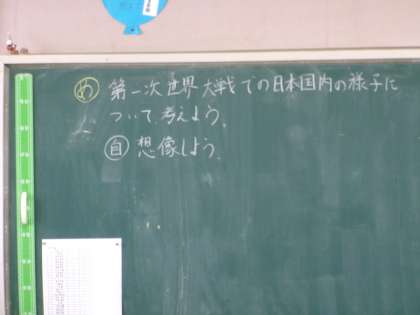 め 第一次世界大戦での日本国内の様子に
ついて考えよう。
自 想像しよう。